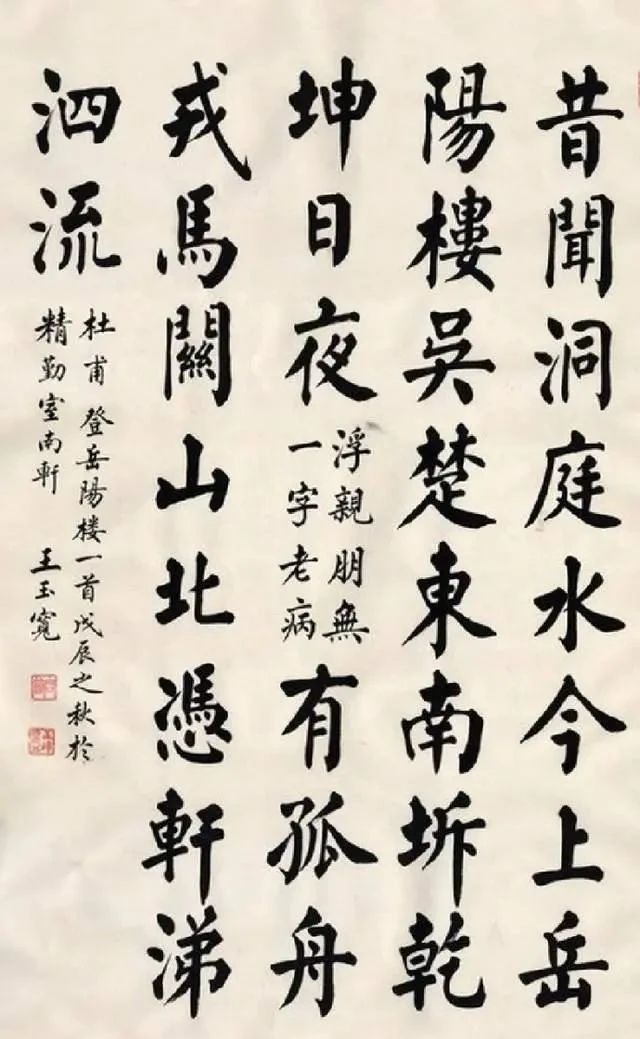 昔聞洞庭水今上岳
陽樓吳楚東南坼乾
坤日夜浮親朋無
一字老病有孤舟
戎馬關山北憑軒涕
泗流
杜甫登岳陽楼一首戊辰之秋於
精勤室南軒 王玉寬